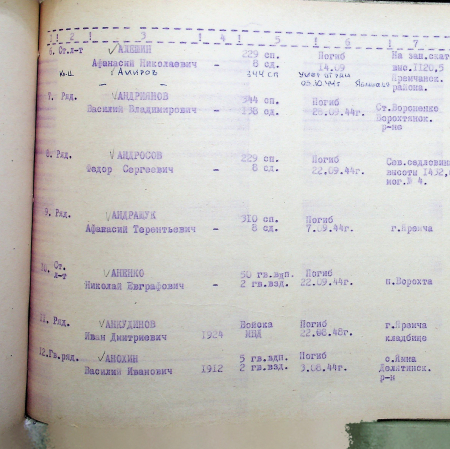 1 2 1 3 1 4 1 5 1 6 1 7
6. Ст.л-т АЛЕШИН 229 сп. Погиб На зап.скат.
Афанасий Николаевич - 8 сд. 14.09 выс.1120,5
к-ц Амиров 344 сп
03.10.44г района.
7. Ряд. АНДРИЯНОВ 344 сп. Погиб Ст.Вороненко
Василий Владимирович - 138 сд. 25.09.44г. Ворохтянск.
р-на
8. Ряд. АНДРОСОВ 229 сп. Погиб Сев.седловины
Федор Сергеевич - 8 сд. 22.09.44г. высоты 1432,
мог.№ 4.
9. Ряд. АНДРАЩУК 310 сп. Погиб
Афанасий Терентьевич - 8 сд. 7.09.44г. г.Яремча
10. Ст.
л-т АНЕНКО 50 гв.адп. Погиб
Николай Евграфович - 2 гв.взд. 22.09.44г. п.Ворохта
11. Ряд. АНКУДИНОВ Войска Погиб г.Яремча
Иван Дмитриевич 1924 НВД 22.08.48г. кладбище
12.Гв.ряд. АНОХИН 5 гв.адп. Погиб с.Ямна
Василий Иванович 1912 2 гв.взд. 3.08.44г. Делятинск.
р-н